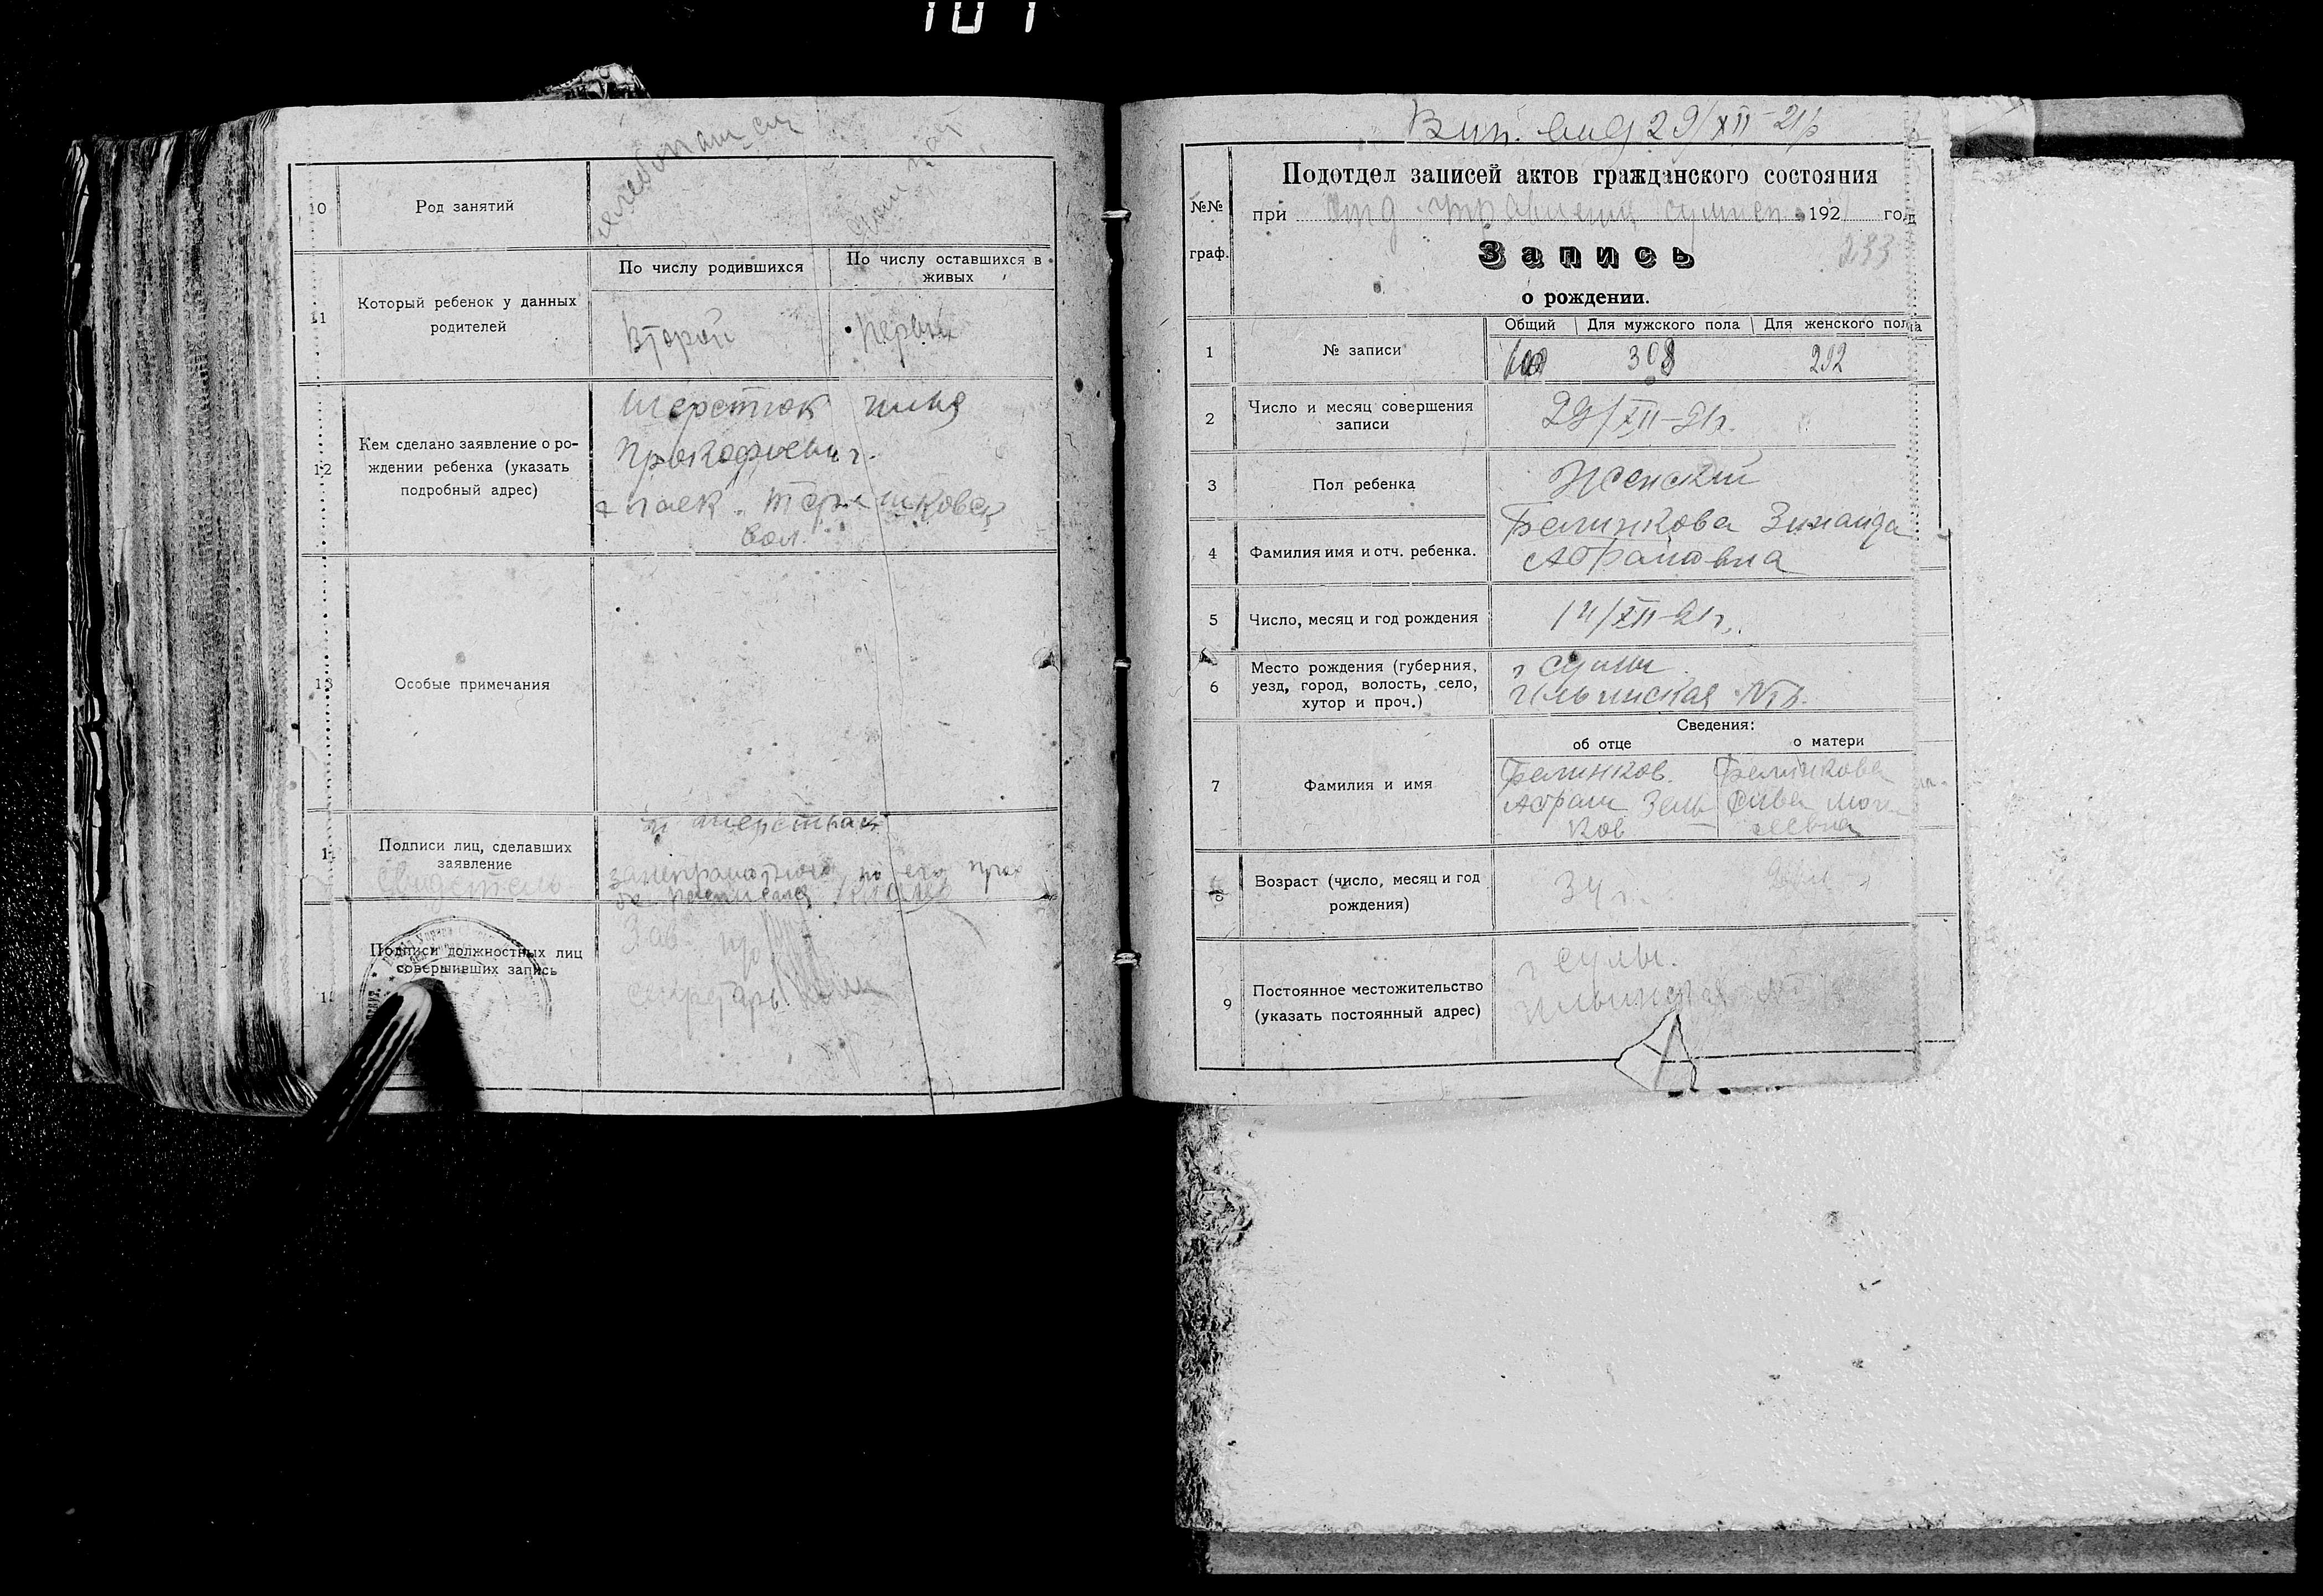 101
10
Род занятий
хлебопашец
11
Который ребенок у данных
родителей
По числу родившихся
По числу оставшихся в
живых
Второй
Первый
12
Кем сделано заявление о ро-
ждении ребенка (указать
подробный адрес)
Шерстюк Илья
Прокофьевич
вол.
13
Особые примечания
Подписи лиц, сделавших
заявление
Свидетель
и Шерстюк
по его прось
бе расписался
Подписи должностных лиц
совершивших запись
Зав.
Секретарь
29/XII-21р
№№
граф.
Подотдел записей актов гражданского состояния
при отд. управления 192 год
233
Запись
о рождении.
1
№ записи
Общий
Для мужского пола
Для женского пола
308
292
2
Число и месяц совершения
записи
29/XII-21г.
3
Пол ребенка
Женский
4
Фамилия имя и отч. ребенка.
Белинкова Зинаида
Абрамовна
5
Число, месяц и год рождения
14/XII-21г.
6
Место рождения (губерния,
уезд, город, волость, село,
хутор и проч.)
г Сумы
Ильинская
Сведения:
об отце
о матери
7
Фамилия и имя
Белинков
Абрам Зель
ков
Белинкова
8
Возраст (число, месяц и год
рождения)
34 г.
9
Постоянное местожительство
(указать постоянный адрес)
г Сумы.
Ильинская